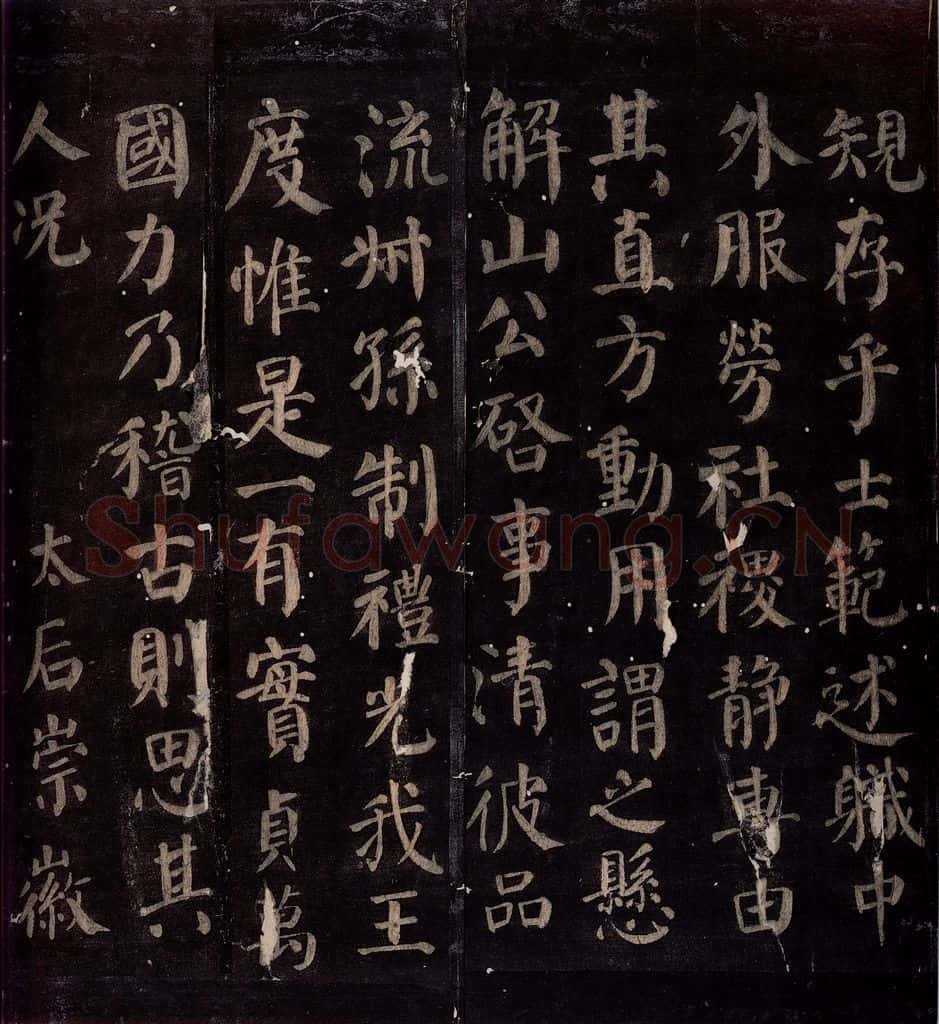 規存乎士範述職中
外服勞社稷静專由
其直方動用謂之懸
解山公啓事清彼品
流叔孫制禮光我王
度惟是一有實貞萬
國力乃稽古則思其
人况 太后崇徽
Shufawang.CN